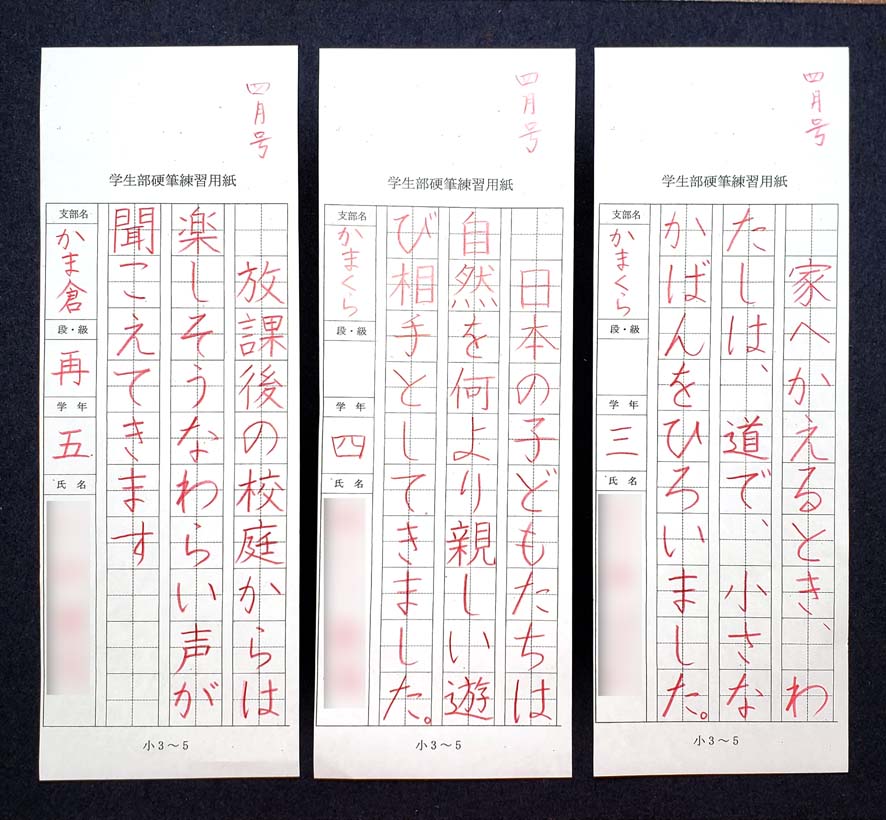 四月号
学生部硬筆練習用紙
家へかえるとき、わ
たしは、道で、小さな
かばんをひろいました。
支部名
かまくら
段・級
学年
三
氏名
小3〜5
四月号
学生部硬筆練習用紙
日本の子どもたちは
自然を何より親しい遊
び相手としてきました。
支部名
かまくら
段・級
学年
四
氏名
小3〜5
四月号
学生部硬筆練習用紙
放課後の校庭からは
楽しそうなわらい声が
聞こえてきます
支部名
かま倉
段・級
再
学年
五
氏名
小3〜5